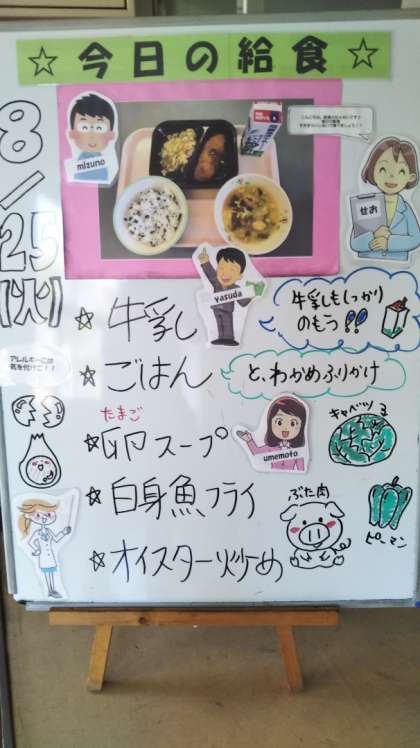 ☆今日の給食☆
8/25(火)
mizuno
せお
yasuda
☆牛乳
牛乳もしっかり
のもう!!
アレルギーには
気を付けて!!
☆ごはん
と、わかめふりかけ
たまご
☆卵スープ
umemoto
キャベツ
☆白身魚フライ
ぶた肉
ピーマン
☆オイスター炒め